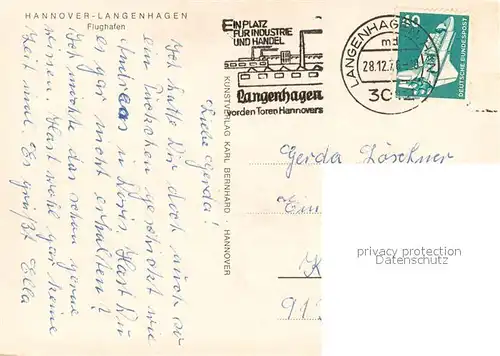 HANNOVER-LANGENHAGEN
Flughafen
Liebe Gerda!
Ich hatte Dir doch auch so
ein Tütchen geschickt wie
Andreas in Köris. Hast Du
es gar nicht erhalten?
Ich möchte das schon gerne
wissen. Hast wohl gar keine
Zeit mal. Es grüßt Ella
KUNSTVERLAG KARL BERNHARD · HANNOVER
EIN PLATZ
FÜR INDUSTRIE
UND HANDEL
Langenhagen
vor den Toren Hannovers
LANGENHAGEN
md
28.12.76
3012
80
DEUTSCHE BUNDESPOST
Gerda Löschner
privacy protection
Datenschutz
K
912